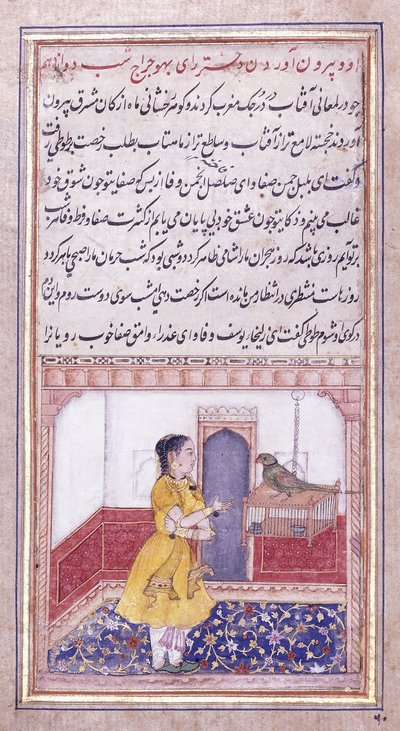 و بیرون آوردن دختر رای بهوجراج شب دوازدهم
چون در لمعانی آفتاب در درجک مغرب کردند و گوهر رخشانی ماه از کان مشرق بیرون
آوردند خجسته لامع تر از آفتاب و ساطع تر از ماهتاب بطلب رخصت بر طوطی رفت
و گفت ای بلبل چمن صفا و ای صلصل انجمن وفا از بس که صفای تو چون شوق خود
غالب می بینم و ذکای تو چون عشق خود بی پایان می یابم از کثرت صفا و فرط وفا
بر تو آیم روزی باشد که روز هجران ما را شامی ظاهر گردد و شبی بود که شب حرمان ما را صبحی باهر گردد
روزهاست منتظری در انتظار من مانده است اگر رخصت دهی امشب سوی دوست روم و این دم
در کوی او شوم طوطی گفت ای زلیخای یوسف وفا و ای عذرای وامق صفا خوب رویا ترا